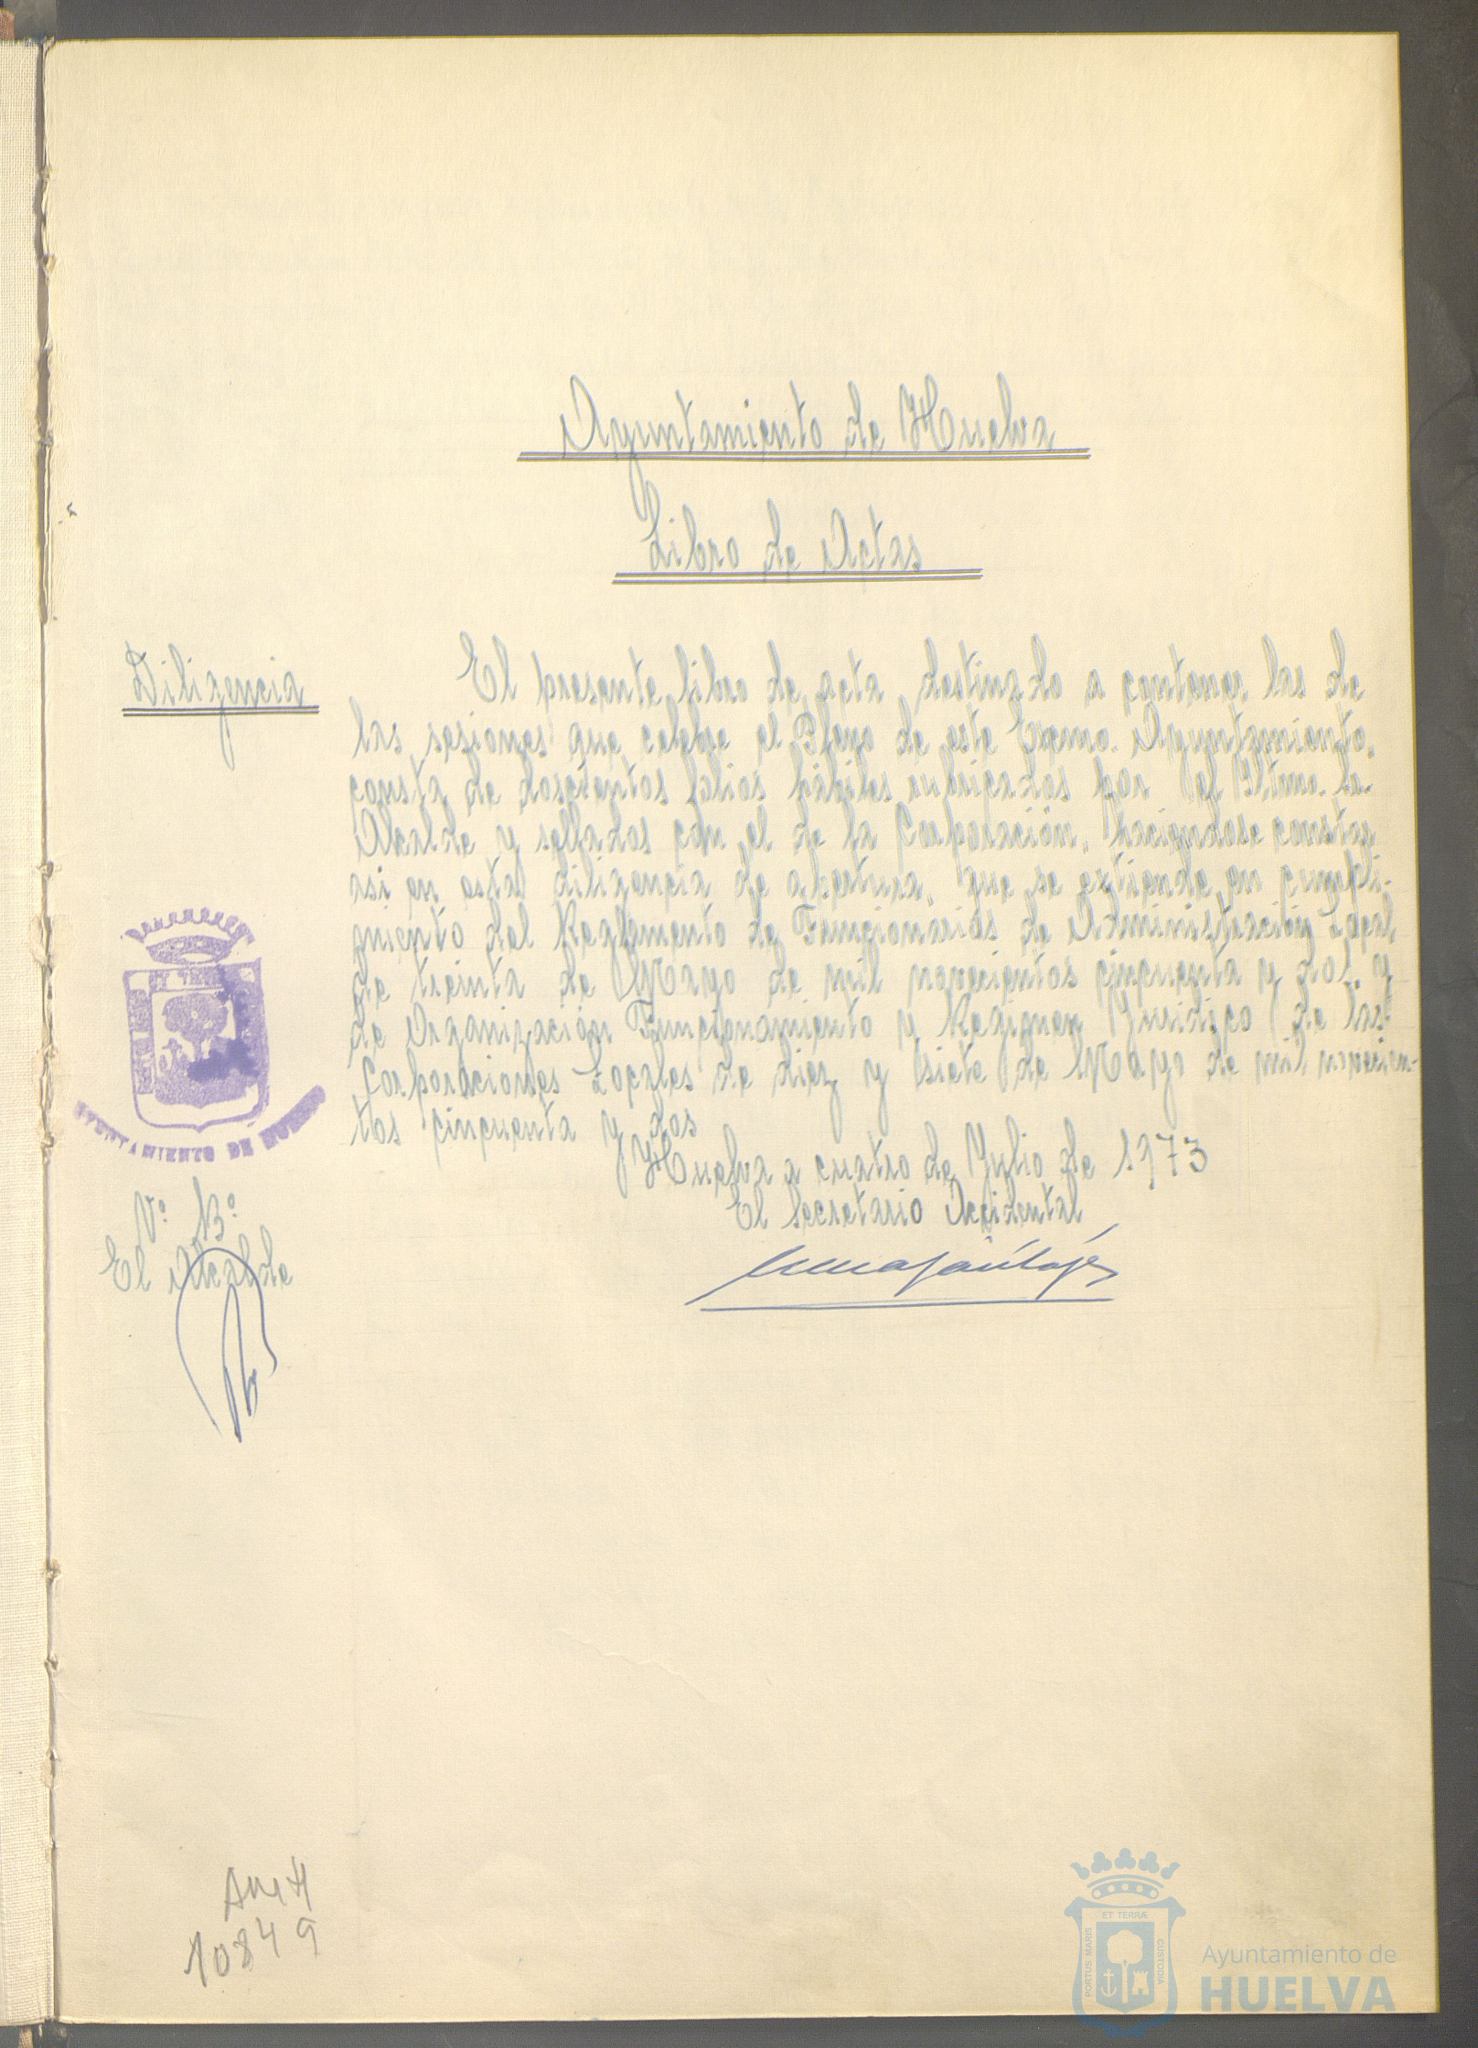 Ayuntamiento de Huelva
Libro de Actas
Diligencia
El presente libro de acta destinado a contener las de
las sesiones que celebre el Pleno de este Excmo. Ayuntamiento,
consta de doscientos folios hábiles rubricados por el Iltmo. Sr.
Alcalde y sellados con el de la Corporación, haciendose constar
asi en esta diligencia de abertura, que se extiende en cumpli-
miento del Reglamento de Funcionarios de Administración Local
de treinta de Mayo de mil novecientos cincuenta y dos y
de Organización Funcionamiento y Regimen Juridico de las
Corporaciones Locales de diez y siete de Mayo de mil novecien-
tos cincuenta y dos
Huelva a cuatro de Julio de 1973
El Secretario Accidental
AYUNTAMIENTO DE HUELVA
Vº Bº
El Alcalde
10849
PORTUS MARIS
ET TERRÆ
CUSTODIA
Ayuntamiento de
HUELVA